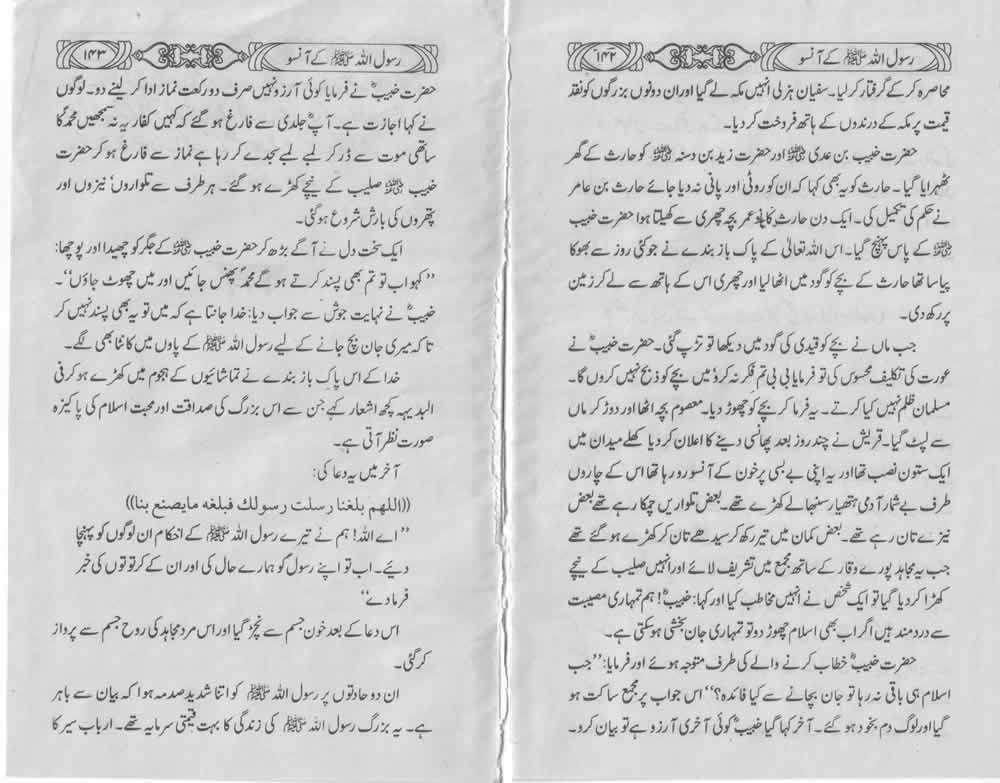 رسول اللہ ﷺ کے آنسو
۱۴۲
محاصرہ کر کے گرفتار کر لیا۔ سفیان ہزلی انہیں مکہ لے گیا اور ان دونوں بزرگوں کو نقد
قیمت پر مکہ کے درندوں کے ہاتھ فروخت کر دیا۔
حضرت خبیب بن عدی ؓ اور حضرت زید بن وسنہ ؓ کو حارث کے گھر
ٹھہرایا گیا۔ حارث کو یہ بھی کہا کہ ان کو روٹی اور پانی نہ دیا جائے حارث بن عامر
نے حکم کی تکمیل کی۔ ایک دن حارث کا نوعمر بچہ چھری سے کھیلتا ہوا حضرت خبیب
ؓ کے پاس پہنچ گیا۔ اس اللہ تعالیٰ کے پاک باز بندے نے جو کئی روز سے بھوکا
پیاسا تھا حارث کے بچے کو گود میں اٹھا لیا اور چھری اس کے ہاتھ سے لے کر زمین
پر رکھ دی۔
جب ماں نے بچے کو قیدی کی گود میں دیکھا تو تڑپ گئی۔ حضرت خبیبؓ نے
عورت کی تکلیف محسوس کی تو فرمایا بی بی تم فکر نہ کرو میں بچے کو ذبح نہیں کروں گا۔
مسلمان ظلم نہیں کیا کرتے۔ یہ فرما کر بچے کو چھوڑ دیا۔ معصوم بچہ اٹھا اور دوڑ کر ماں
سے لپٹ گیا۔ قریش نے چند روز بعد پھانسی دینے کا اعلان کر دیا کھلے میدان میں
ایک ستون نصب تھا اور یہ اپنی بے بسی پر خون کے آنسو رو رہا تھا اس کے چاروں
طرف بے شمار آدمی ہتھیار سنبھالے کھڑے تھے۔ بعض تلواریں چمکا رہے تھے بعض
نیزے تان رہے تھے۔ بعض کمان میں تیر رکھ کر سیدھے تان کر کھڑے ہو گئے تھے
جب یہ مجاہد پورے وقار کے ساتھ مجمع میں تشریف لائے اور انہیں صلیب کے نیچے
کھڑا کر دیا گیا تو ایک شخص نے انہیں مخاطب کیا اور کہا: خبیبؓ! ہم تمہاری مصیبت
سے دردمند ہیں اگر اب بھی اسلام چھوڑ دو تو تمہاری جان بخشی ہو سکتی ہے۔
حضرت خبیبؓ خطاب کرنے والے کی طرف متوجہ ہوئے اور فرمایا: ’’جب
اسلام ہی باقی نہ رہا تو جان بچانے سے کیا فائدہ؟‘‘ اس جواب پر مجمع ساکت ہو
گیا اور لوگ دم بخود ہو گئے۔ آخر کہا گیا خبیبؓ کوئی آخری آرزو ہے تو بیان کرو۔
رسول اللہ ﷺ کے آنسو
۱۴۳
حضرت خبیبؓ نے فرمایا کوئی آرزو نہیں صرف دو رکعت نماز ادا کر لینے دو۔ لوگوں
نے کہا اجازت ہے۔ آپؓ جلدی سے فارغ ہو گئے کہ کہیں کفار یہ نہ سمجھیں محمدؐ کا
ساتھی موت سے ڈر کر لمبے لمبے سجدے کر رہا ہے نماز سے فارغ ہو کر حضرت
خبیب ؓ صلیب کے نیچے کھڑے ہو گئے۔ ہر طرف سے تلواروں‘ نیزوں اور
پتھروں کی بارش شروع ہو گئی۔
ایک سخت دل نے آگے بڑھ کر حضرت خبیب ؓ کے جگر کو چھیدا اور پوچھا:
’’کہو اب تو تم بھی پسند کرتے ہو گے محمدؐ پھنس جائیں اور میں چھوٹ جاؤں‘‘۔
خبیبؓ نے نہایت جوش سے جواب دیا: خدا جانتا ہے کہ میں تو یہ بھی پسند نہیں کر
تا کہ میری جان بچ جانے کے لیے رسول اللہ ﷺ کے پاوں میں کانٹا بھی لگے۔
خدا کے اس پاک باز بندے نے تماشائیوں کے ہجوم میں کھڑے ہو کر فی
البدیہہ کچھ اشعار کہے جن سے اس بزرگ کی صداقت اور محبت اسلام کی پاکیزہ
صورت نظر آتی ہے۔
آخر میں یہ دعا کی:
((اللهم بلغنا رسلت رسولك فبلغه مايصنع بنا))
’’اے اللہ! ہم نے تیرے رسول اللہ ﷺ کے احکام ان لوگوں کو پہنچا
دیئے۔ اب تو اپنے رسول کو ہمارے حال کی اور ان کے کرتوتوں کی خبر
فرما دے‘‘
اس دعا کے بعد خون جسم سے نچڑ گیا اور اس مرد مجاہد کی روح جسم سے پرواز
کر گئی۔
ان دو حادثوں پر رسول اللہ ﷺ کو اتنا شدید صدمہ ہوا کہ بیان سے باہر
ہے۔ یہ بزرگ رسول اللہ ﷺ کی زندگی کا بہت قیمتی سرمایہ تھے۔ ارباب سیر کا